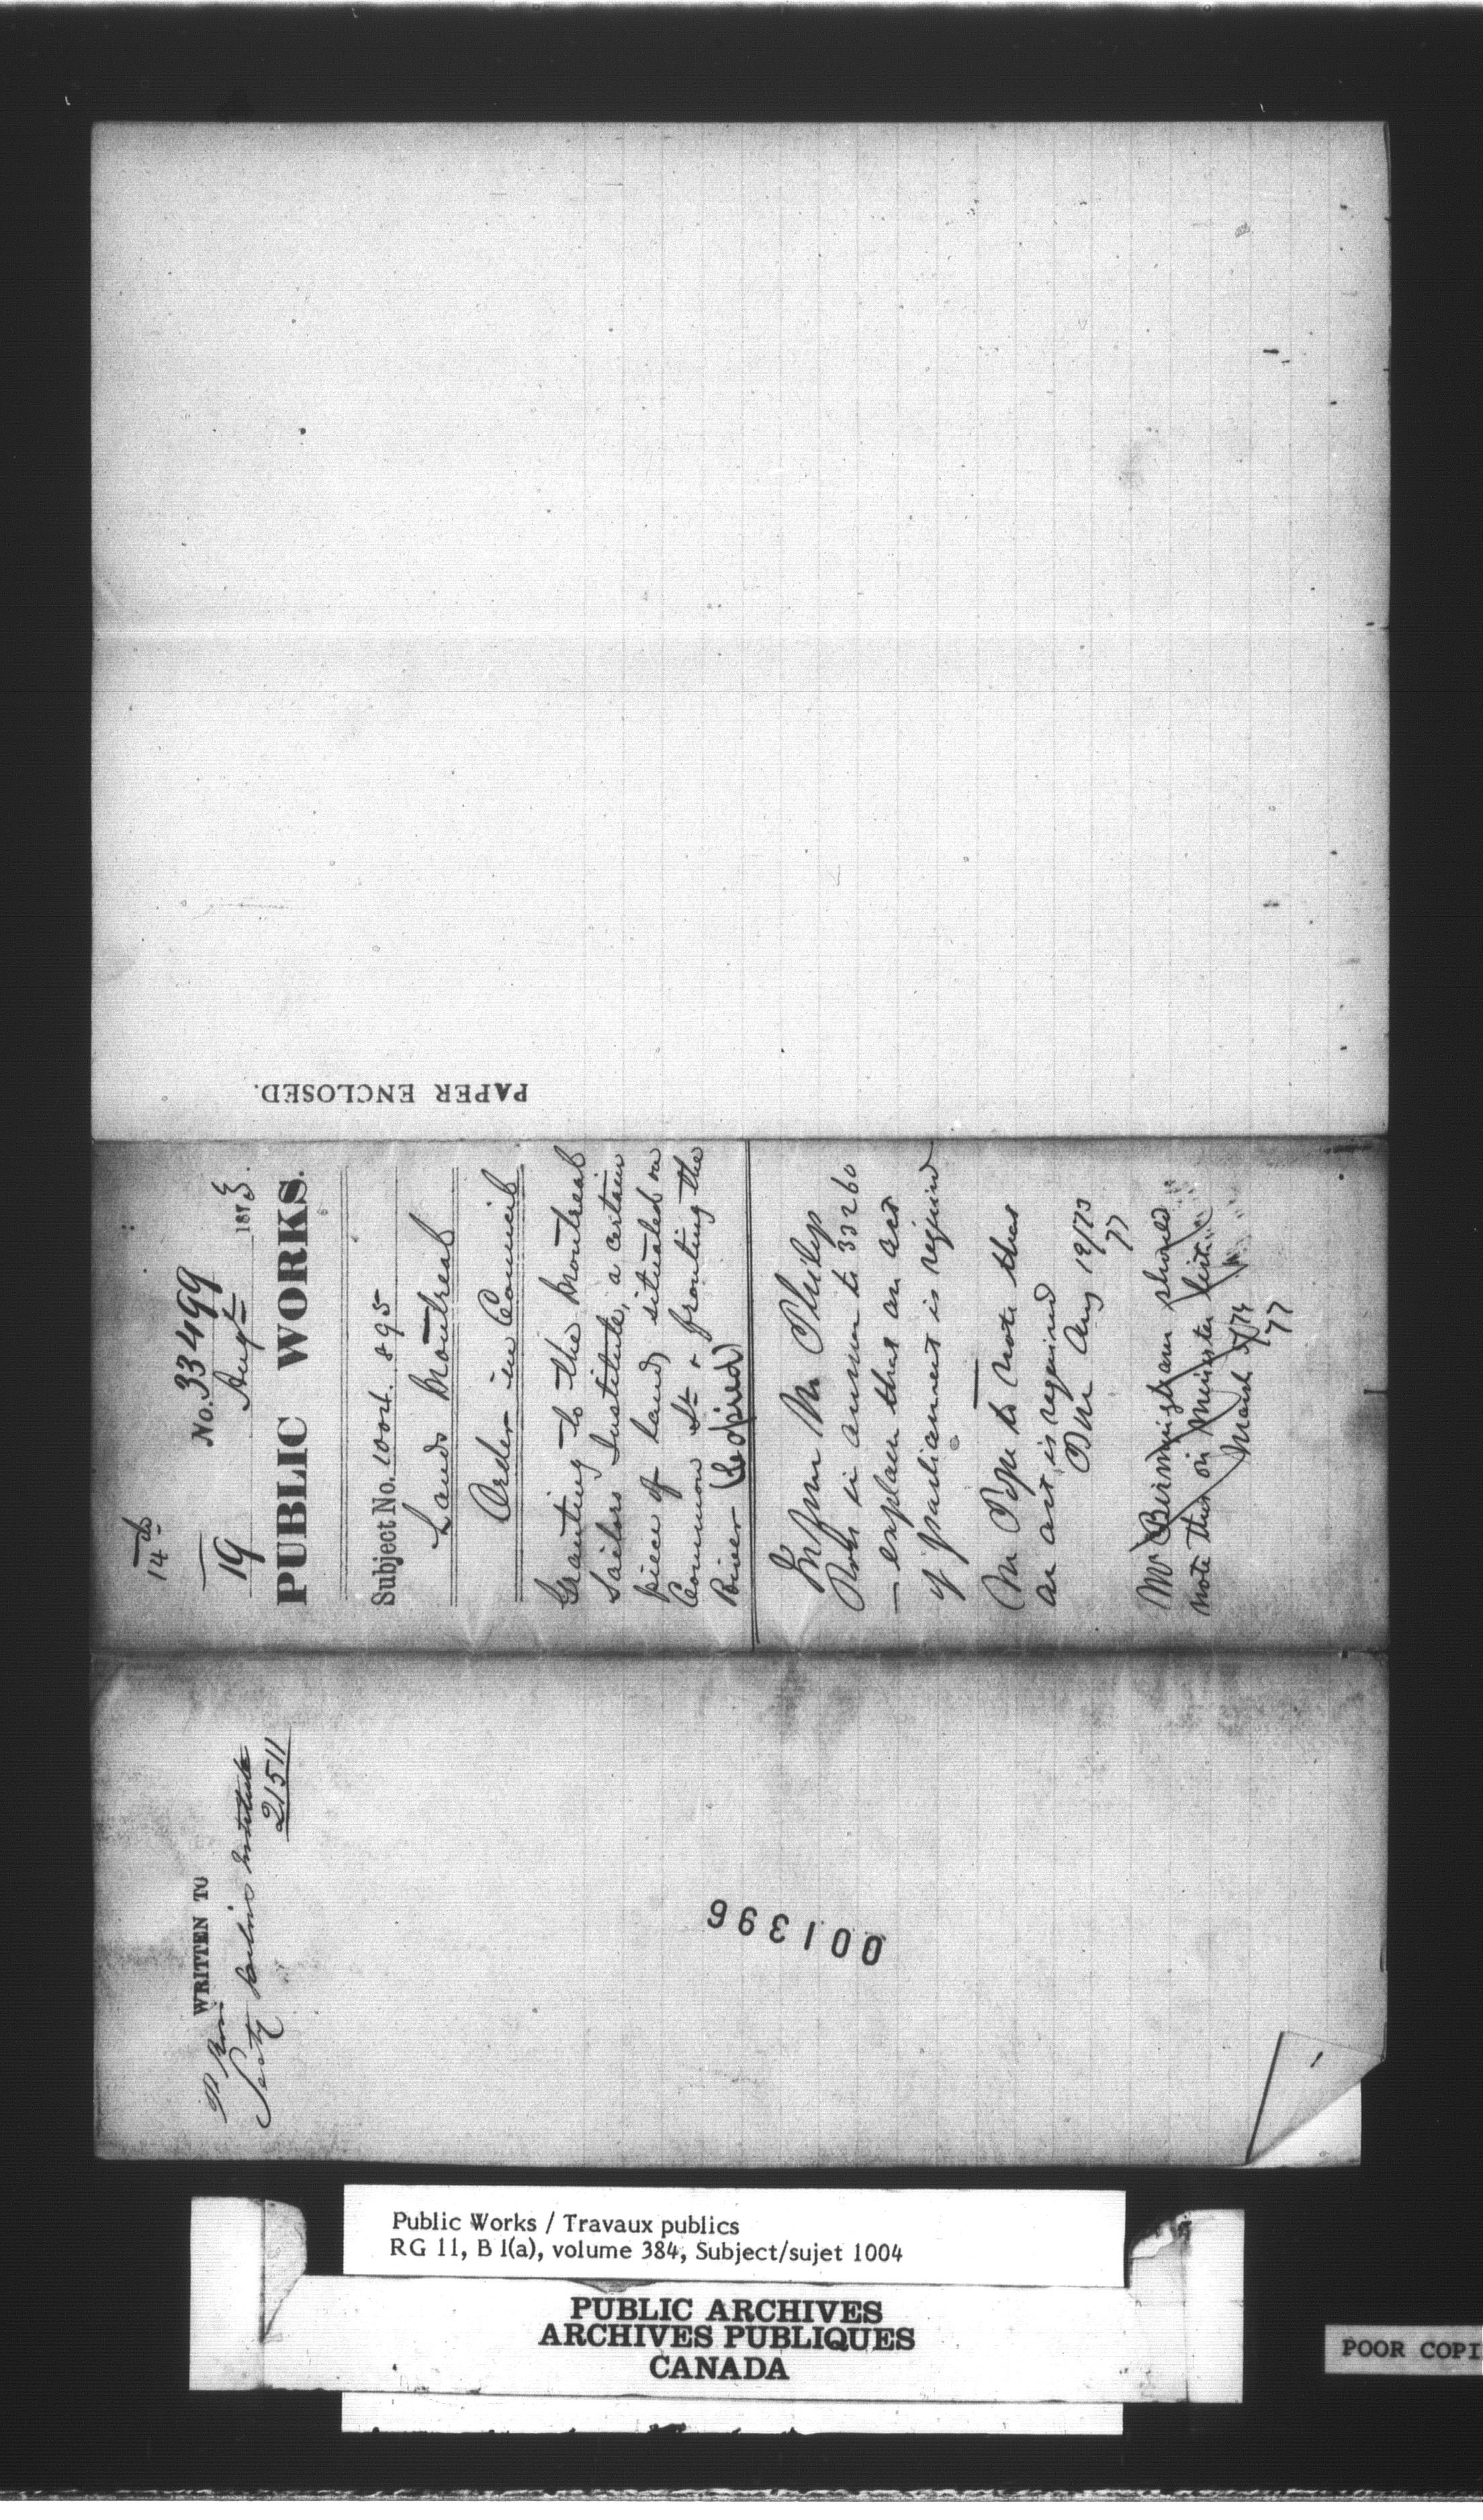 PAPER ENCLOSED.
14th
19
No. 33499
Augt 1873.
PUBLIC WORKS.
Subject No. 1004. 895
Lands Montreal
Order in Council
Granting to the Montreal
Sailors Institute, a certain
piece of land, situated on
Common St & fronting the
River (Copied)
Inform Mr Philip
Ross in answer to 33260
— explain that an act
of parliament is required
Mr Pope to note that
an act is required
Aug 19/73
77
Mr Bermingham should
note this on Minister list
March 7/74
77
WRITTEN TO
P Ross
Secty Sailors Institute
21511
001396
Public Works / Travaux publics
RG 11, B 1(a), volume 384, Subject/sujet 1004
PUBLIC ARCHIVES
ARCHIVES PUBLIQUES
CANADA
POOR COPI